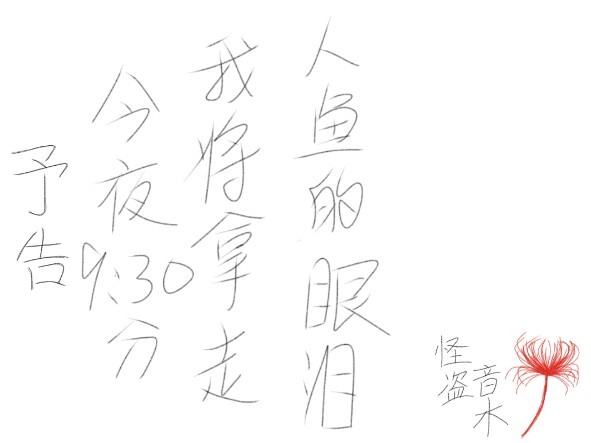 予告
今夜9:30分
我将拿走
人鱼的眼泪
怪盗
音木